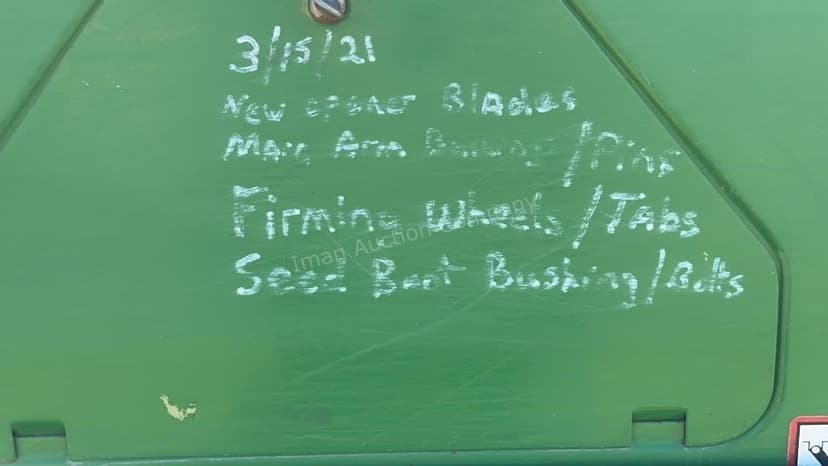 3/15/21
New opener Blades
Main Arm Bushing/Pins
Firming Wheels/Tabs
Iman Auction Company
Seed Boot Bushing/Bolts